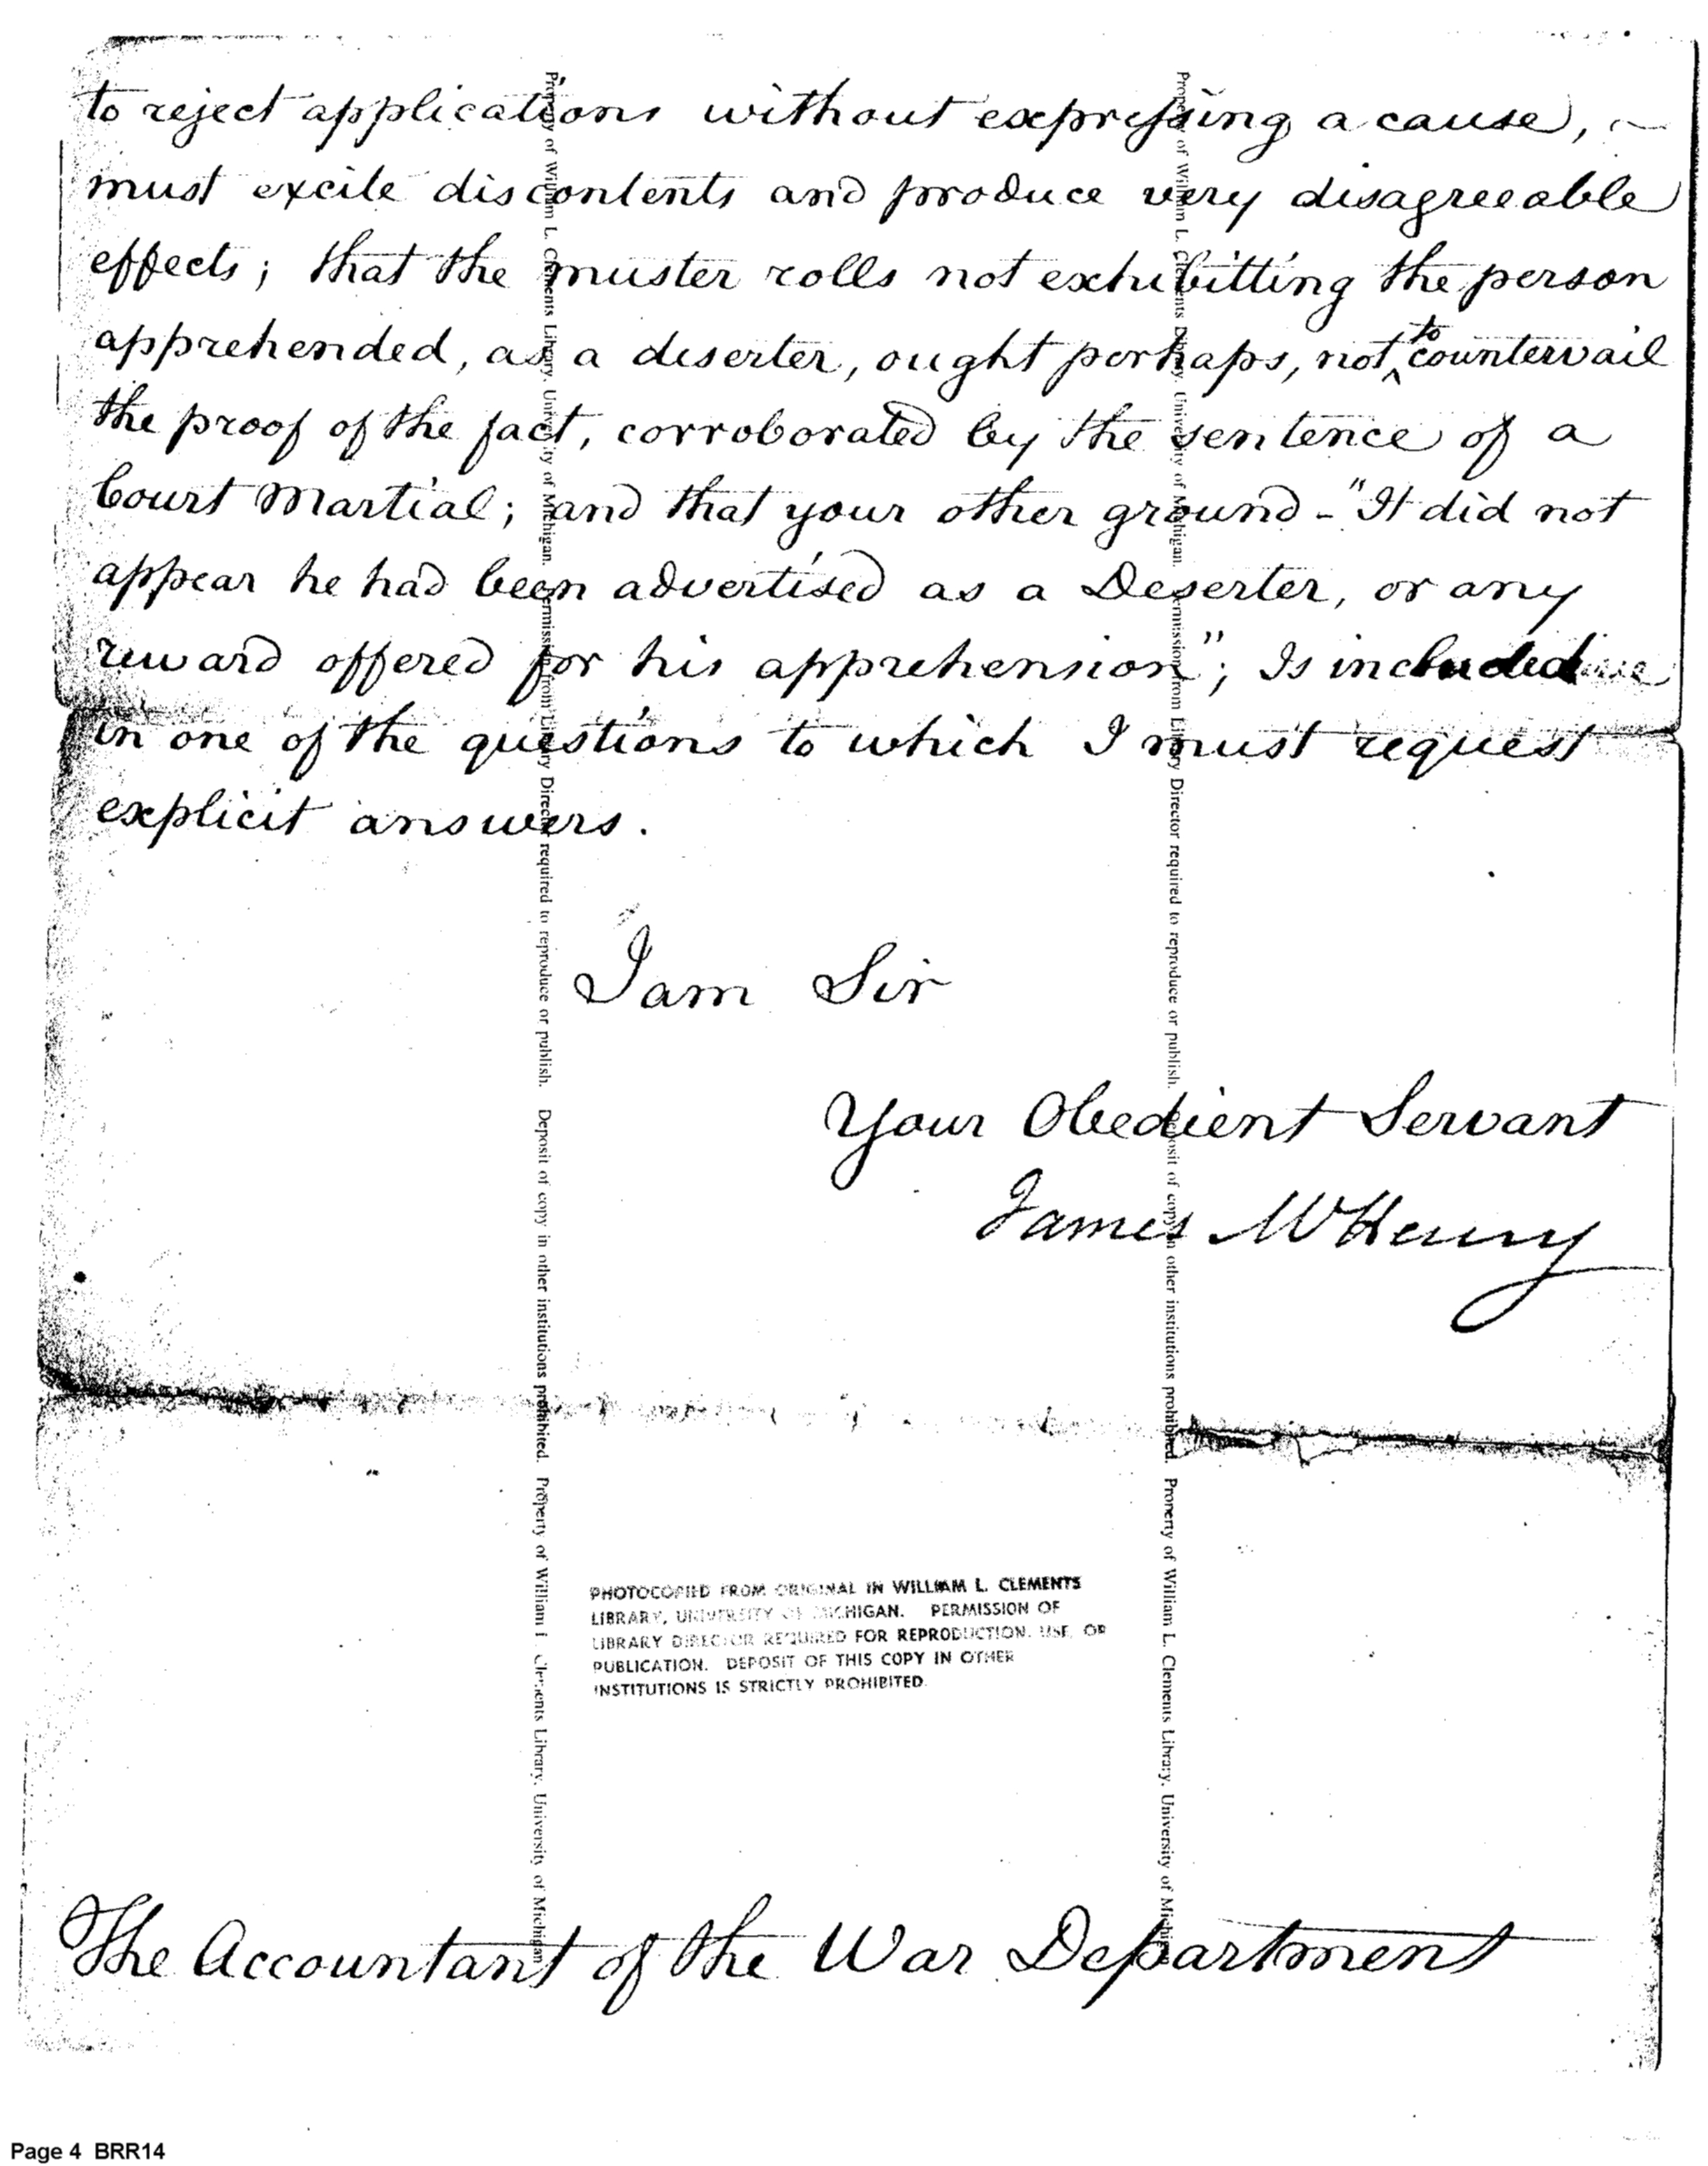 to reject applications without expressing a cause,
must excite discontents and produce very disagreeable
effects; that the muster rolls not exhibitting the person
apprehended, as a deserter, ought perhaps, not ^to countervail
the proof of the fact, corroborated by the sentence of a
Court Martial; and that your other ground - "It did not
appear he had been advertised as a Deserter, or any
reward offered for his apprehension"; Is included
in one of the questions to which I must request
explicit answers.
I am Sir
Your Obedient Servant
James McHenry
PHOTOCOPIED FROM ORIGINAL IN WILLIAM L. CLEMENTS
LIBRARY, UNIVERSITY OF MICHIGAN. PERMISSION OF
LIBRARY DIRECTOR REQUIRED FOR REPRODUCTION, USE, OR
PUBLICATION. DEPOSIT OF THIS COPY IN OTHER
INSTITUTIONS IS STRICTLY PROHIBITED.
The Accountant of the War Department
Property of William L. Clements Library, University of Michigan. Permission from Library Director required to reproduce or publish. Deposit of copy in other institutions prohibited. Property of William L. Clements Library, University of Michigan
Property of William L. Clements Library, University of Michigan. Permission from Library Director required to reproduce or publish. Deposit of copy in other institutions prohibited. Property of William L. Clements Library, University of Michigan
Page 4 BRR14